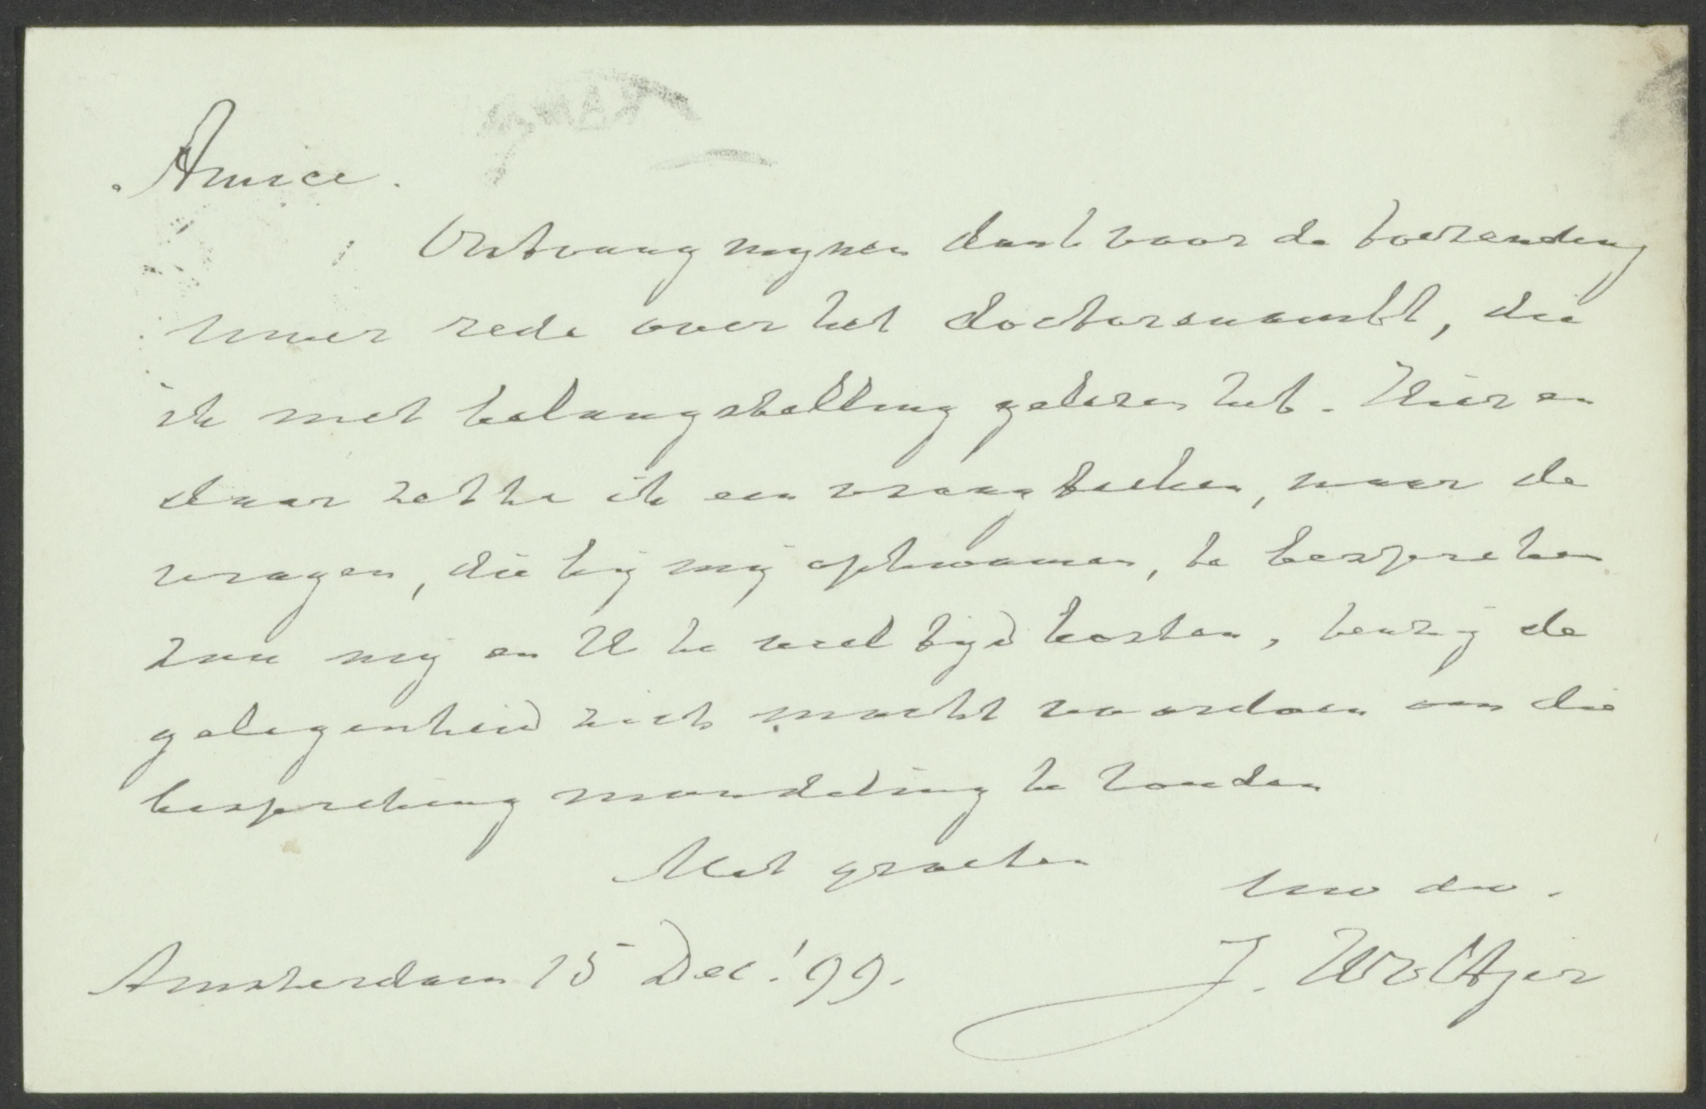 Amice.
Ontvang mynen dank voor de toezending
uwer rede over het doctorenambt, die
ik met belangstelling gelezen heb. Hier en
daar zette ik een vraagteeken, maar de
vragen, die bij mij opkwamen, te bespreken
zou mij en U te veel tijd kosten, tenzij de
gelegenheid zich mocht voordoen om die
bespreking mondeling te houden
Met groeten
Uw dw.
Amsterdam 15 Dec. '99.
J. Woltjer